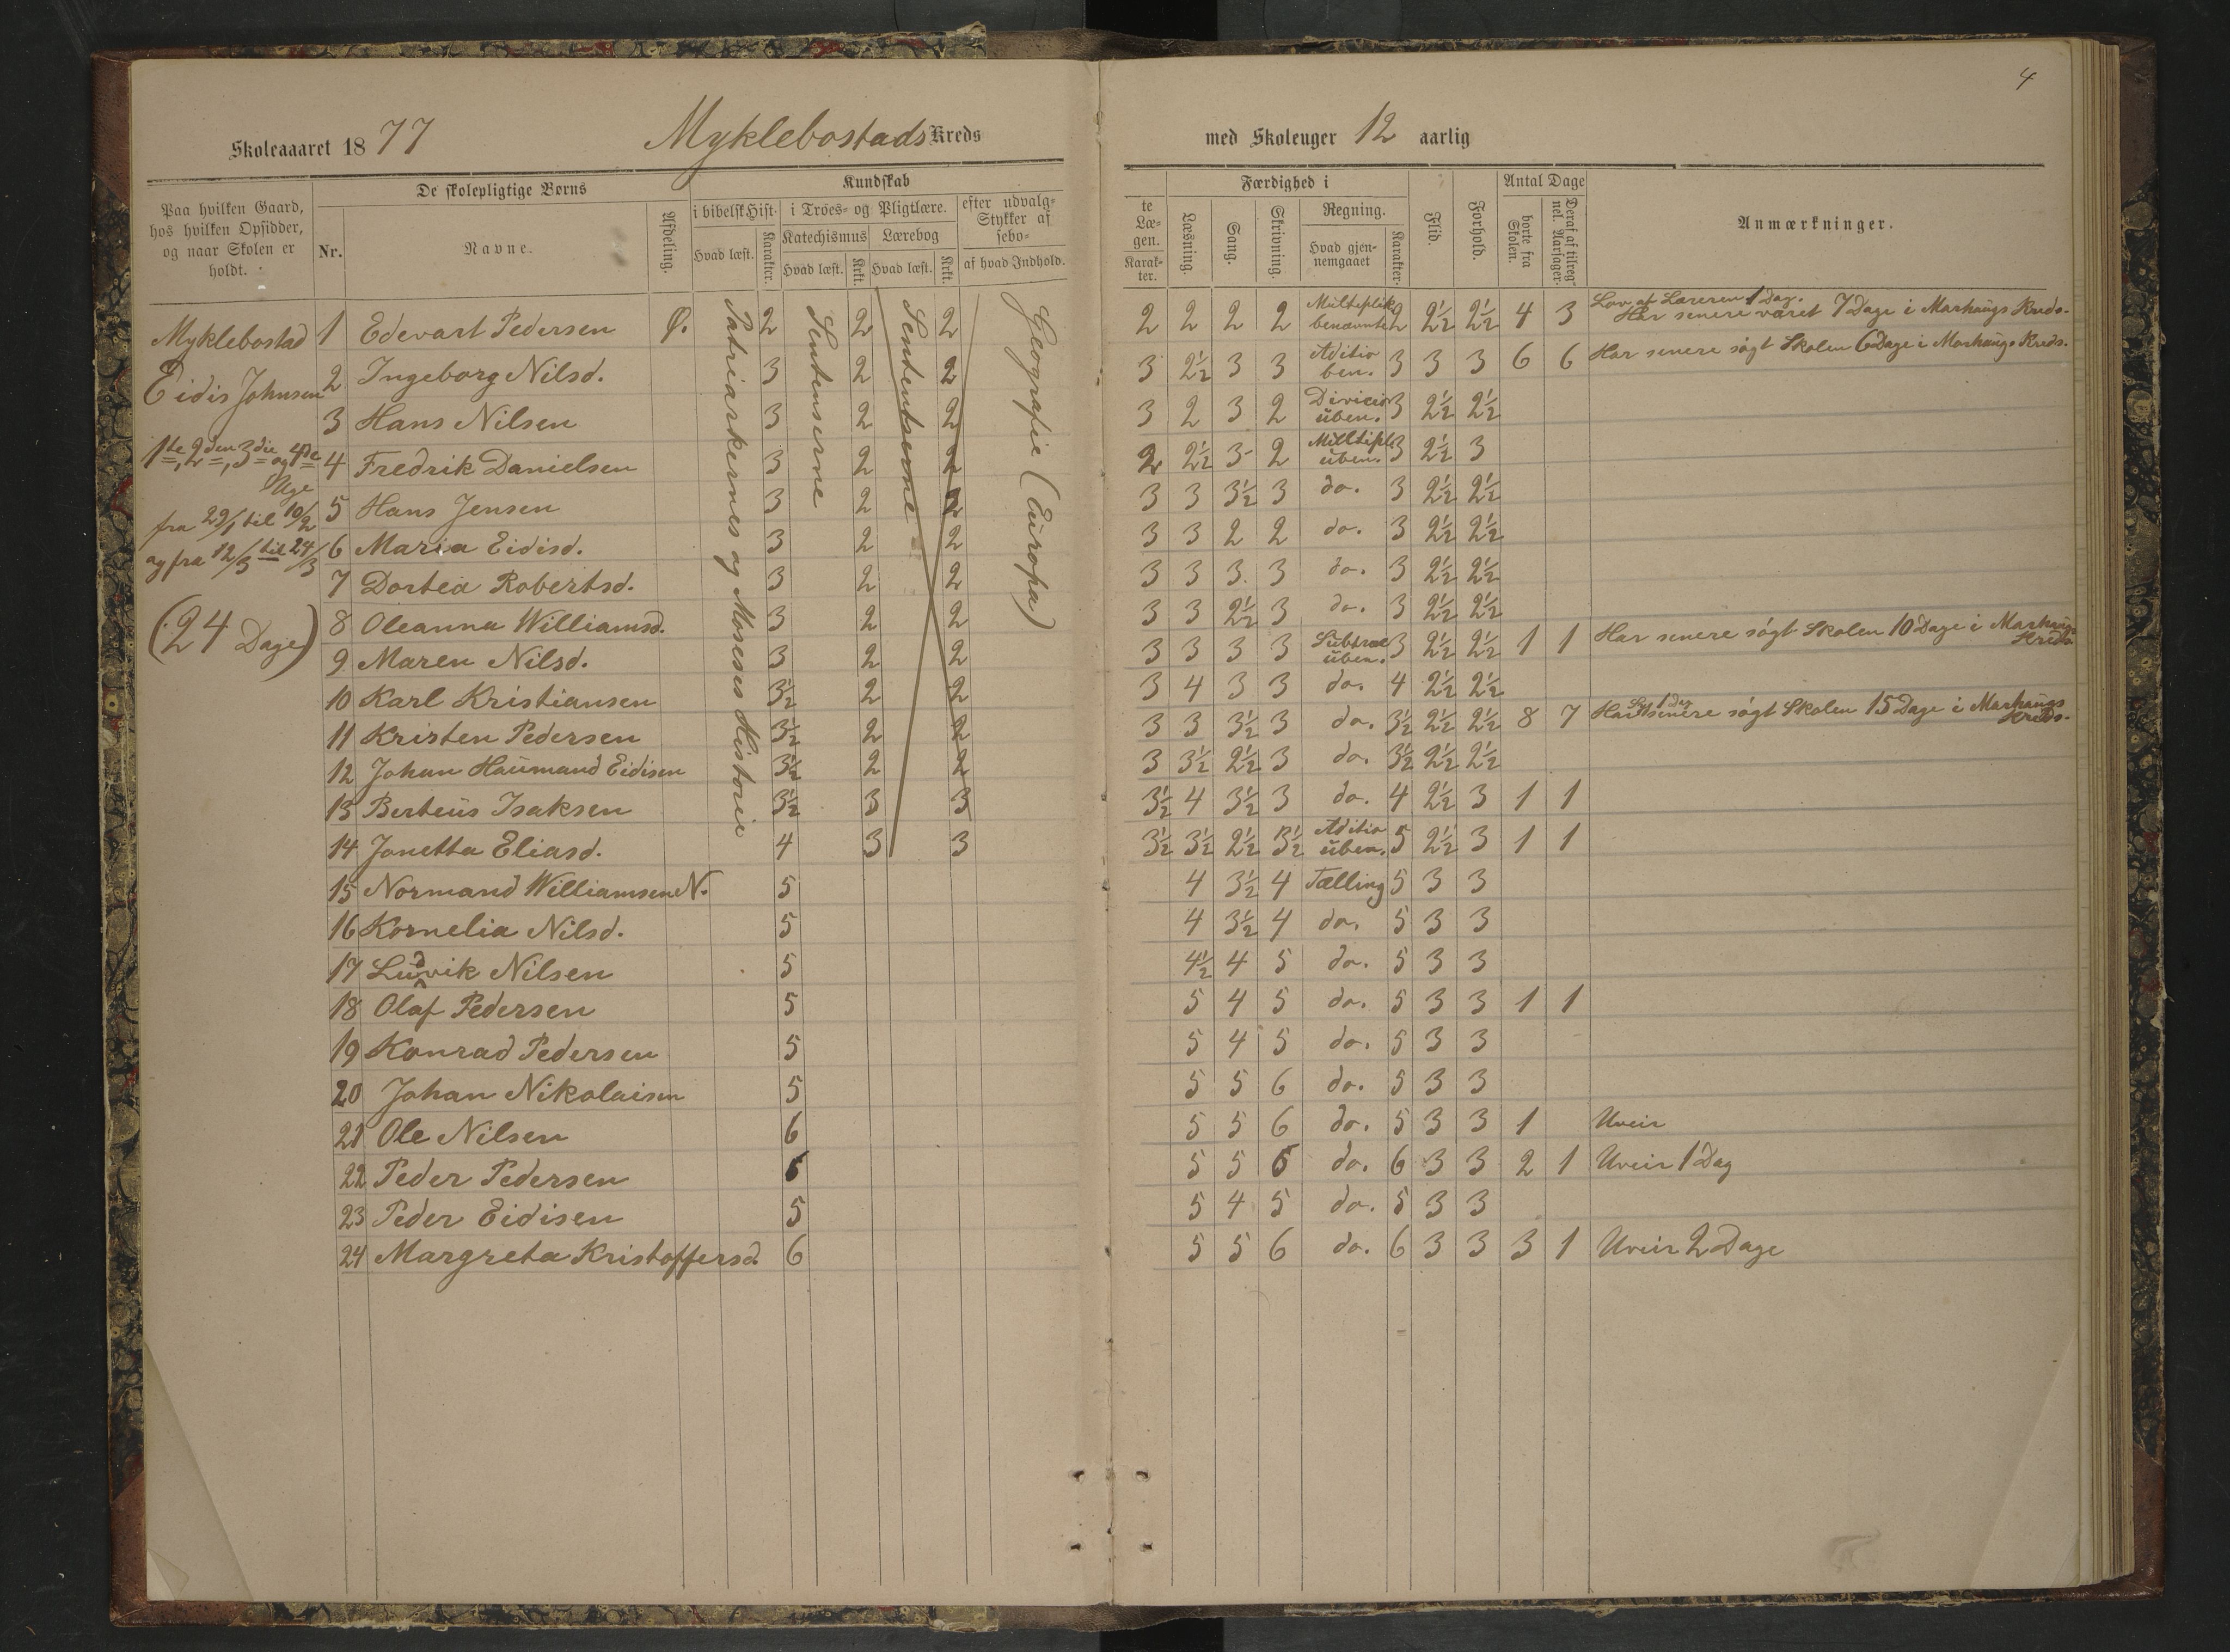 4
Skoleaaaret 1877 Myklebostads Kreds
med Skoleuger 12 aarlig
Paa hvilken Gaard, hos hvilken Opsidder, og naar Skolen er holdt.
De skolepligtige Børns
Nr.
Navne.
Afdeling.
Kundskab
i bibelsk Hist.
Hvad læst.
Karakter.
i Troes- og Pligtlære.
Katechismus
Hvad læst.
Krkt.
Lærebog
Hvad læst.
Krkt.
efter udvalg-
Stykker af
sebo-
af hvad Indhold.
te
Læ-
gen.
Karak-
ter.
Færdighed i
Læsning.
Sang.
Skrivning.
Regning.
Hvad gjen-
nemgaaet
Karakter.
Flid.
Forhold.
Antal Dage
borte fra Skolen.
Deraf af tilreg-
nel. Aarsager.
Anmærkninger.
Myklebostad
Eidis Johnsen
1te, 2den, 3die og 4de
Uge
fra 29/1 til 10/2
og fra 12/3 til 24/3
(24 Dage)
Patriarkernes og Moseses Historie
Sentenserne
Sentenserne
Geografie (Europa)
1 Edevart Pedersen Ø. 2 2 2 2 2 2 2 Multiplik benævnte 2 2½ 2½ 4 3 Lov af Læreren 1 Dag. Har senere været 7 Dage i Marhaugs Kreds.
2 Ingeborg Nilsd. 3 2 2 3 2½ 3 3 Aditio ben. 3 3 3 6 6 Har senere søgt Skolen 6 Dage i Marhaugs Kreds.
3 Hans Nilsen 3 2 2 3 2 3 2 Divicion uben. 3 2½ 2½
4 Fredrik Danielsen 3 2 2 2 2½ 3 2 Multipl. uben. 3 2½ 3
5 Hans Jensen 3 2 2 3 3 3½ 3 do. 3 2½ 2½
6 Maria Eidisd. 3 2 2 3 3 2 2 do. 3 2½ 2½
7 Dortea Robertsd. 3 2 2 3 3 3 3 do. 3 2½ 2½
8 Oleanna Williamsd. 3 2 2 3 3 2½ 3 do. 3 2½ 2½
9 Maren Nilsd. 3 2 2 3 3 3 3 Subtrac uben. 3 2½ 2½ 1 1 Har senere søgt Skolen 10 Dage i Marhaugs Kreds
10 Karl Kristiansen 3½ 2 2 3 4 3 3 do. 4 2½ 2½
11 Kristen Pedersen 3½ 2 2 3 3 3½ 3 do. 3½ 2½ 2½ 8 7 Har senere søgt Skolen 15 Dage i Marhaugs Kreds. 1 dag
12 Johan Haumand Eidisen 3½ 2 2 3 3½ 2½ 3 do. 3½ 2½ 2½
13 Berteus Isaksen 3½ 3 3 3½ 4 3½ 3 do. 4 2½ 3 1 1
14 Jonetta Eliasd. 4 3 3 3½ 3½ 2½ 3½ Aditio uben. 5 2½ 3 1 1
15 Normand Williamsen N. 5 4 3½ 4 Tælling 5 3 3
16 Kornelia Nilsd. 5 4 3½ 4 do. 5 3 3
17 Ludvik Nilsen 5 4½ 4 5 do. 5 3 3
18 Olaf Pedersen 5 5 4 5 do. 5 3 3 1 1
19 Konrad Pedersen 5 5 4 5 do. 5 3 3
20 Johan Nikolaisen 5 5 5 6 do. 5 3 3
21 Ole Nilsen 6 5 5 6 do. 5 3 3 1 Uveir
22 Peder Pedersen 6 5 5 6 do. 6 3 3 2 1 Uveir 1 Dag
23 Peder Eidisen 5 5 4 5 do. 5 3 3
24 Margreta Kristoffersd. 6 5 5 6 do. 6 3 3 3 1 Uveir 2 Dage